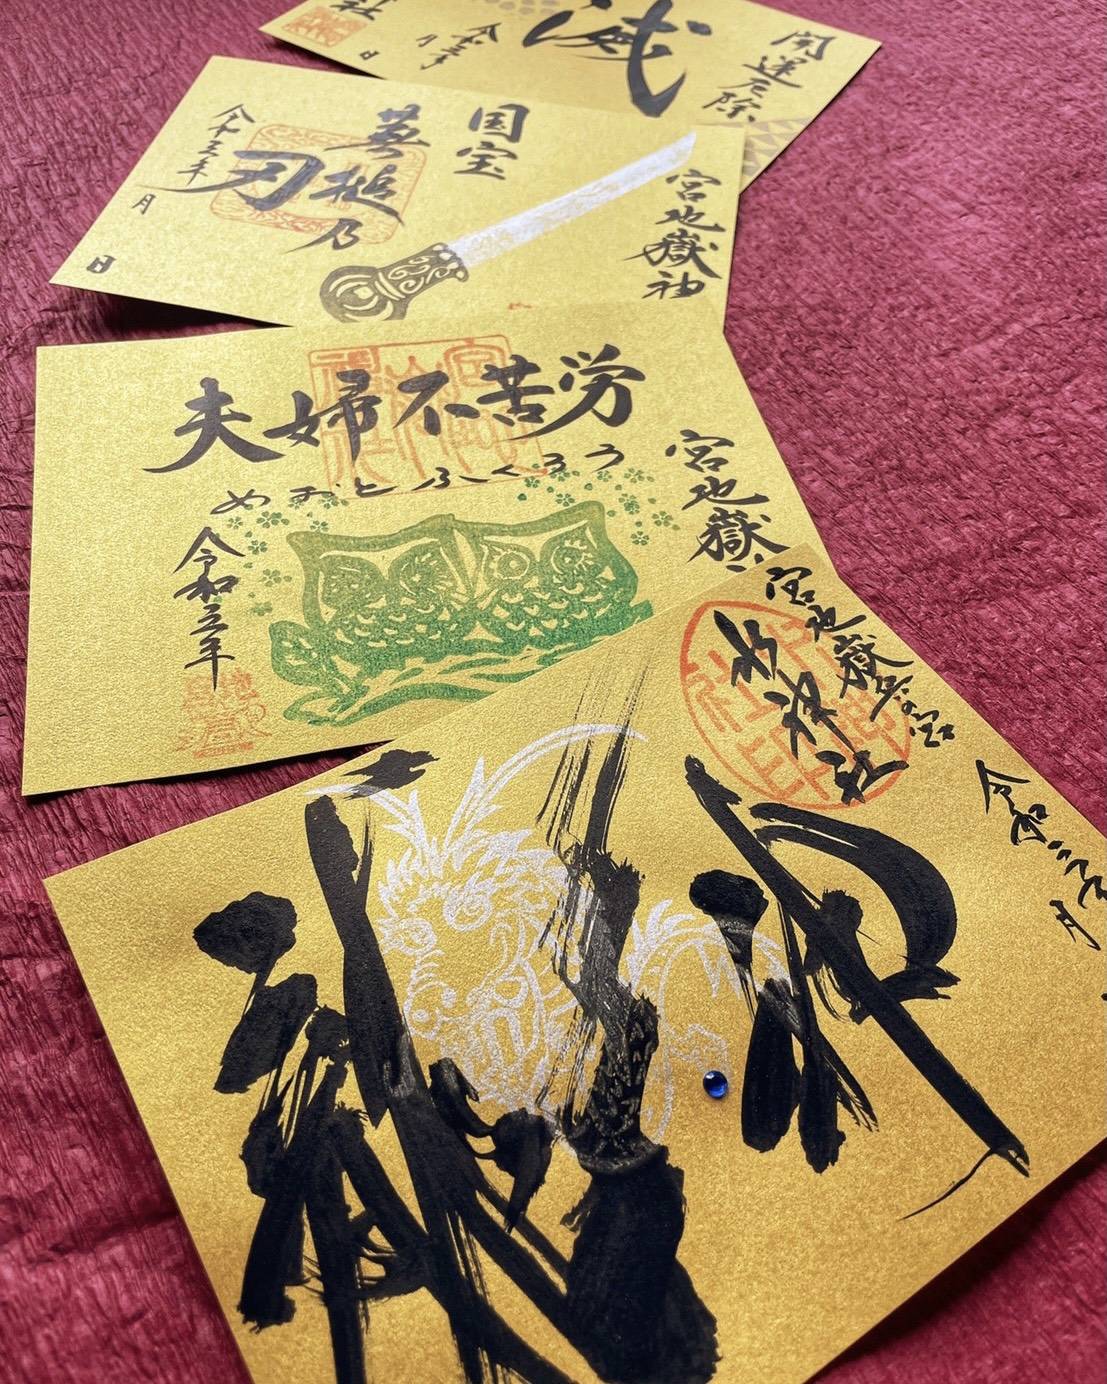 開運厄除
滅
令和三年
月
日
社
宮地嶽神
国宝
蕪槌乃
刃
令和三年
月
日
夫婦不苦労
めおとふくろう
宮地嶽
令和三年
宮地嶽
水神社
令和三年
月
水神